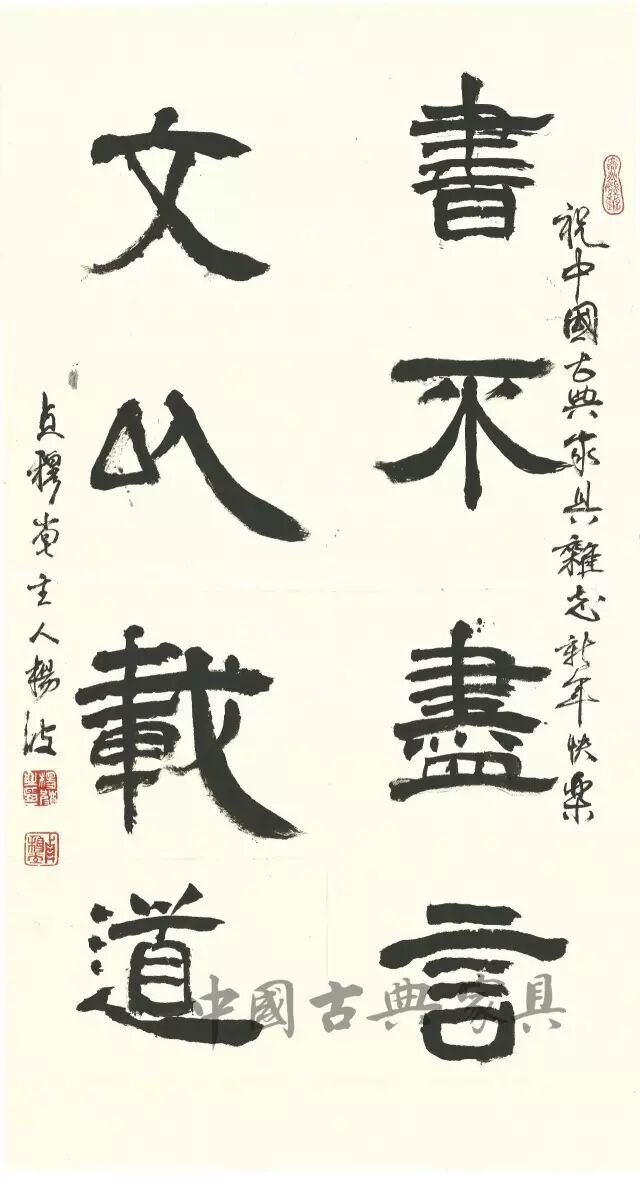 祝中國古典家具雜志新年快樂
書不盡言
文以載道
主人楊波
中國古典家具